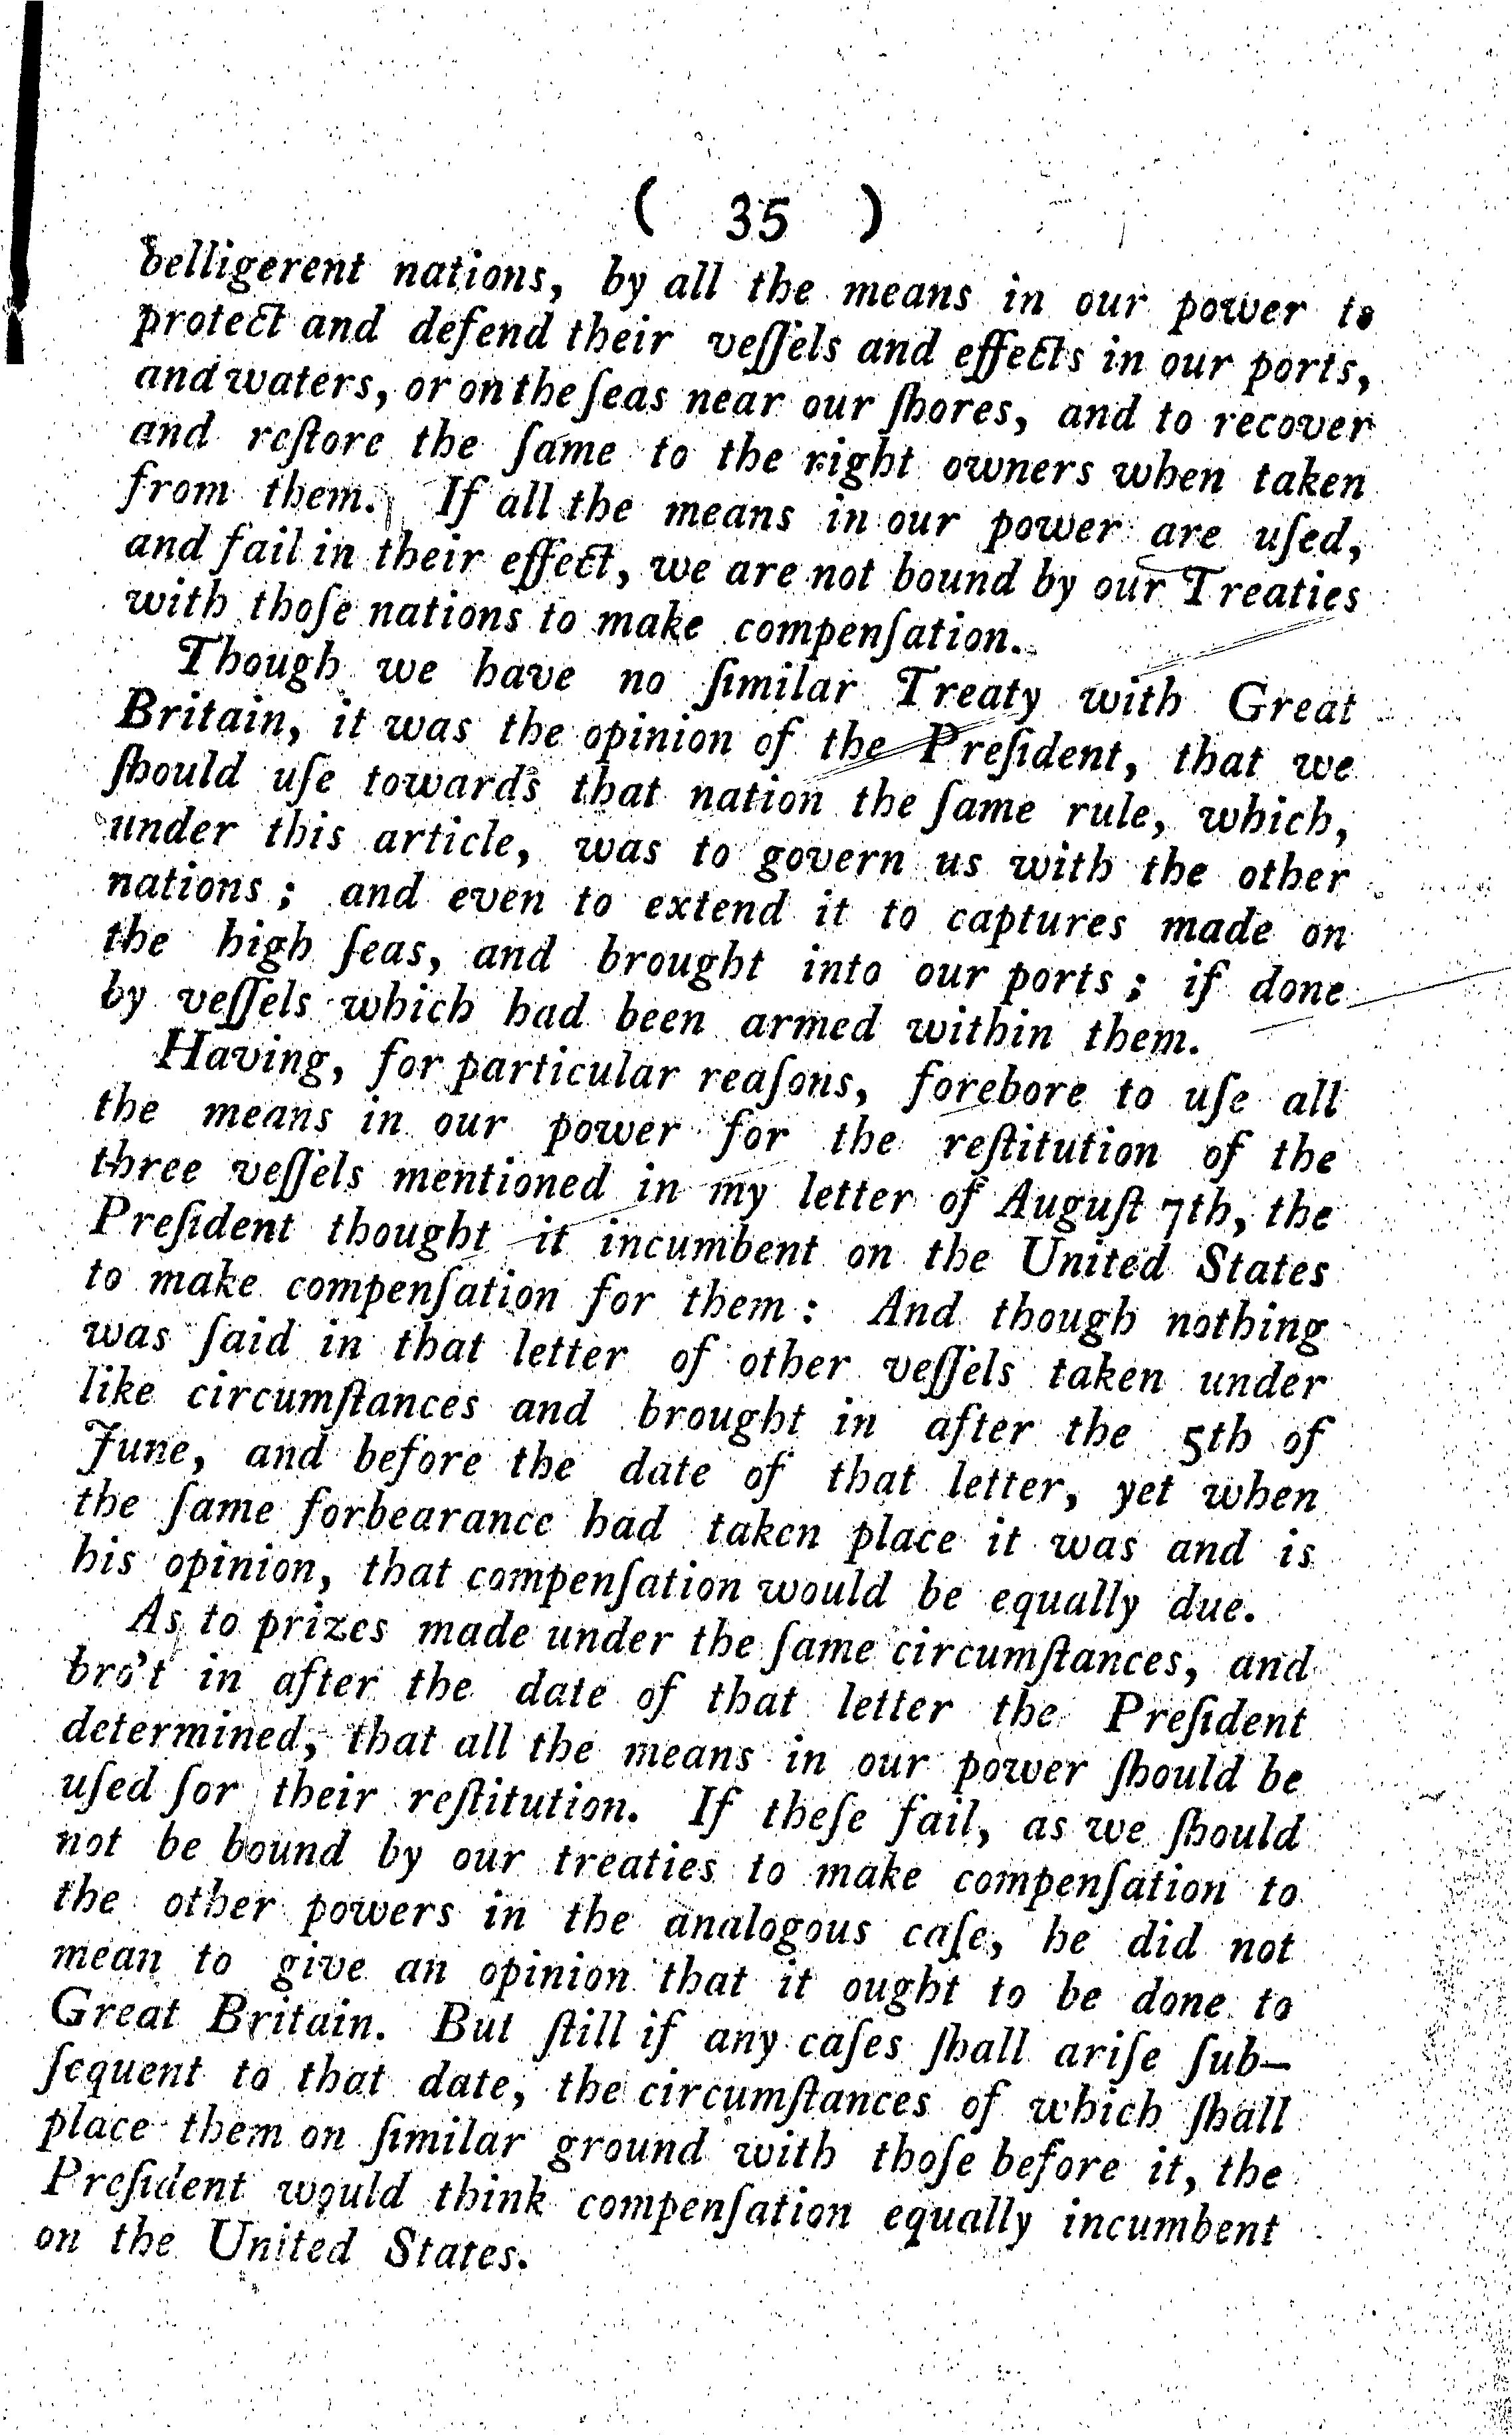 ( 35 )
belligerent nations, by all the means in our power to
protect and defend their veſſels and effects in our ports,
and waters, or on the ſeas near our ſhores, and to recover
and reſtore the ſame to the right owners when taken
from them. If all the means in our power are uſed,
and fail in their effect, we are not bound by our Treaties
with thoſe nations to make compenſation.
Though we have no ſimilar Treaty with Great
Britain, it was the opinion of the Preſident, that we
ſhould uſe towards that nation the ſame rule, which,
under this article, was to govern us with the other
nations; and even to extend it to captures made on
the high ſeas, and brought into our ports; if done
by veſſels which had been armed within them.
Having, for particular reaſons, forebore to uſe all
the means in our power for the reſtitution of the
three veſſels mentioned in my letter of Auguſt 7th, the
Preſident thought it incumbent on the United States
to make compenſation for them: And though nothing
was ſaid in that letter of other veſſels taken under
like circumſtances and brought in after the 5th of
June, and before the date of that letter, yet when
the ſame forbearance had taken place it was and is
his opinion, that compenſation would be equally due.
As to prizes made under the ſame circumſtances, and
bro't in after the date of that letter the Preſident
determined, that all the means in our power ſhould be
uſed ſor their reſtitution. If theſe fail, as we ſhould
not be bound by our treaties to make compenſation to
the other powers in the analogous caſe, he did not
mean to give an opinion that it ought to be done to
Great Britain. But ſtill if any caſes ſhall ariſe ſub-
ſequent to that date, the circumſtances of which ſhall
place them on ſimilar ground with thoſe before it, the
Preſident would think compenſation equally incumbent
on the United States.